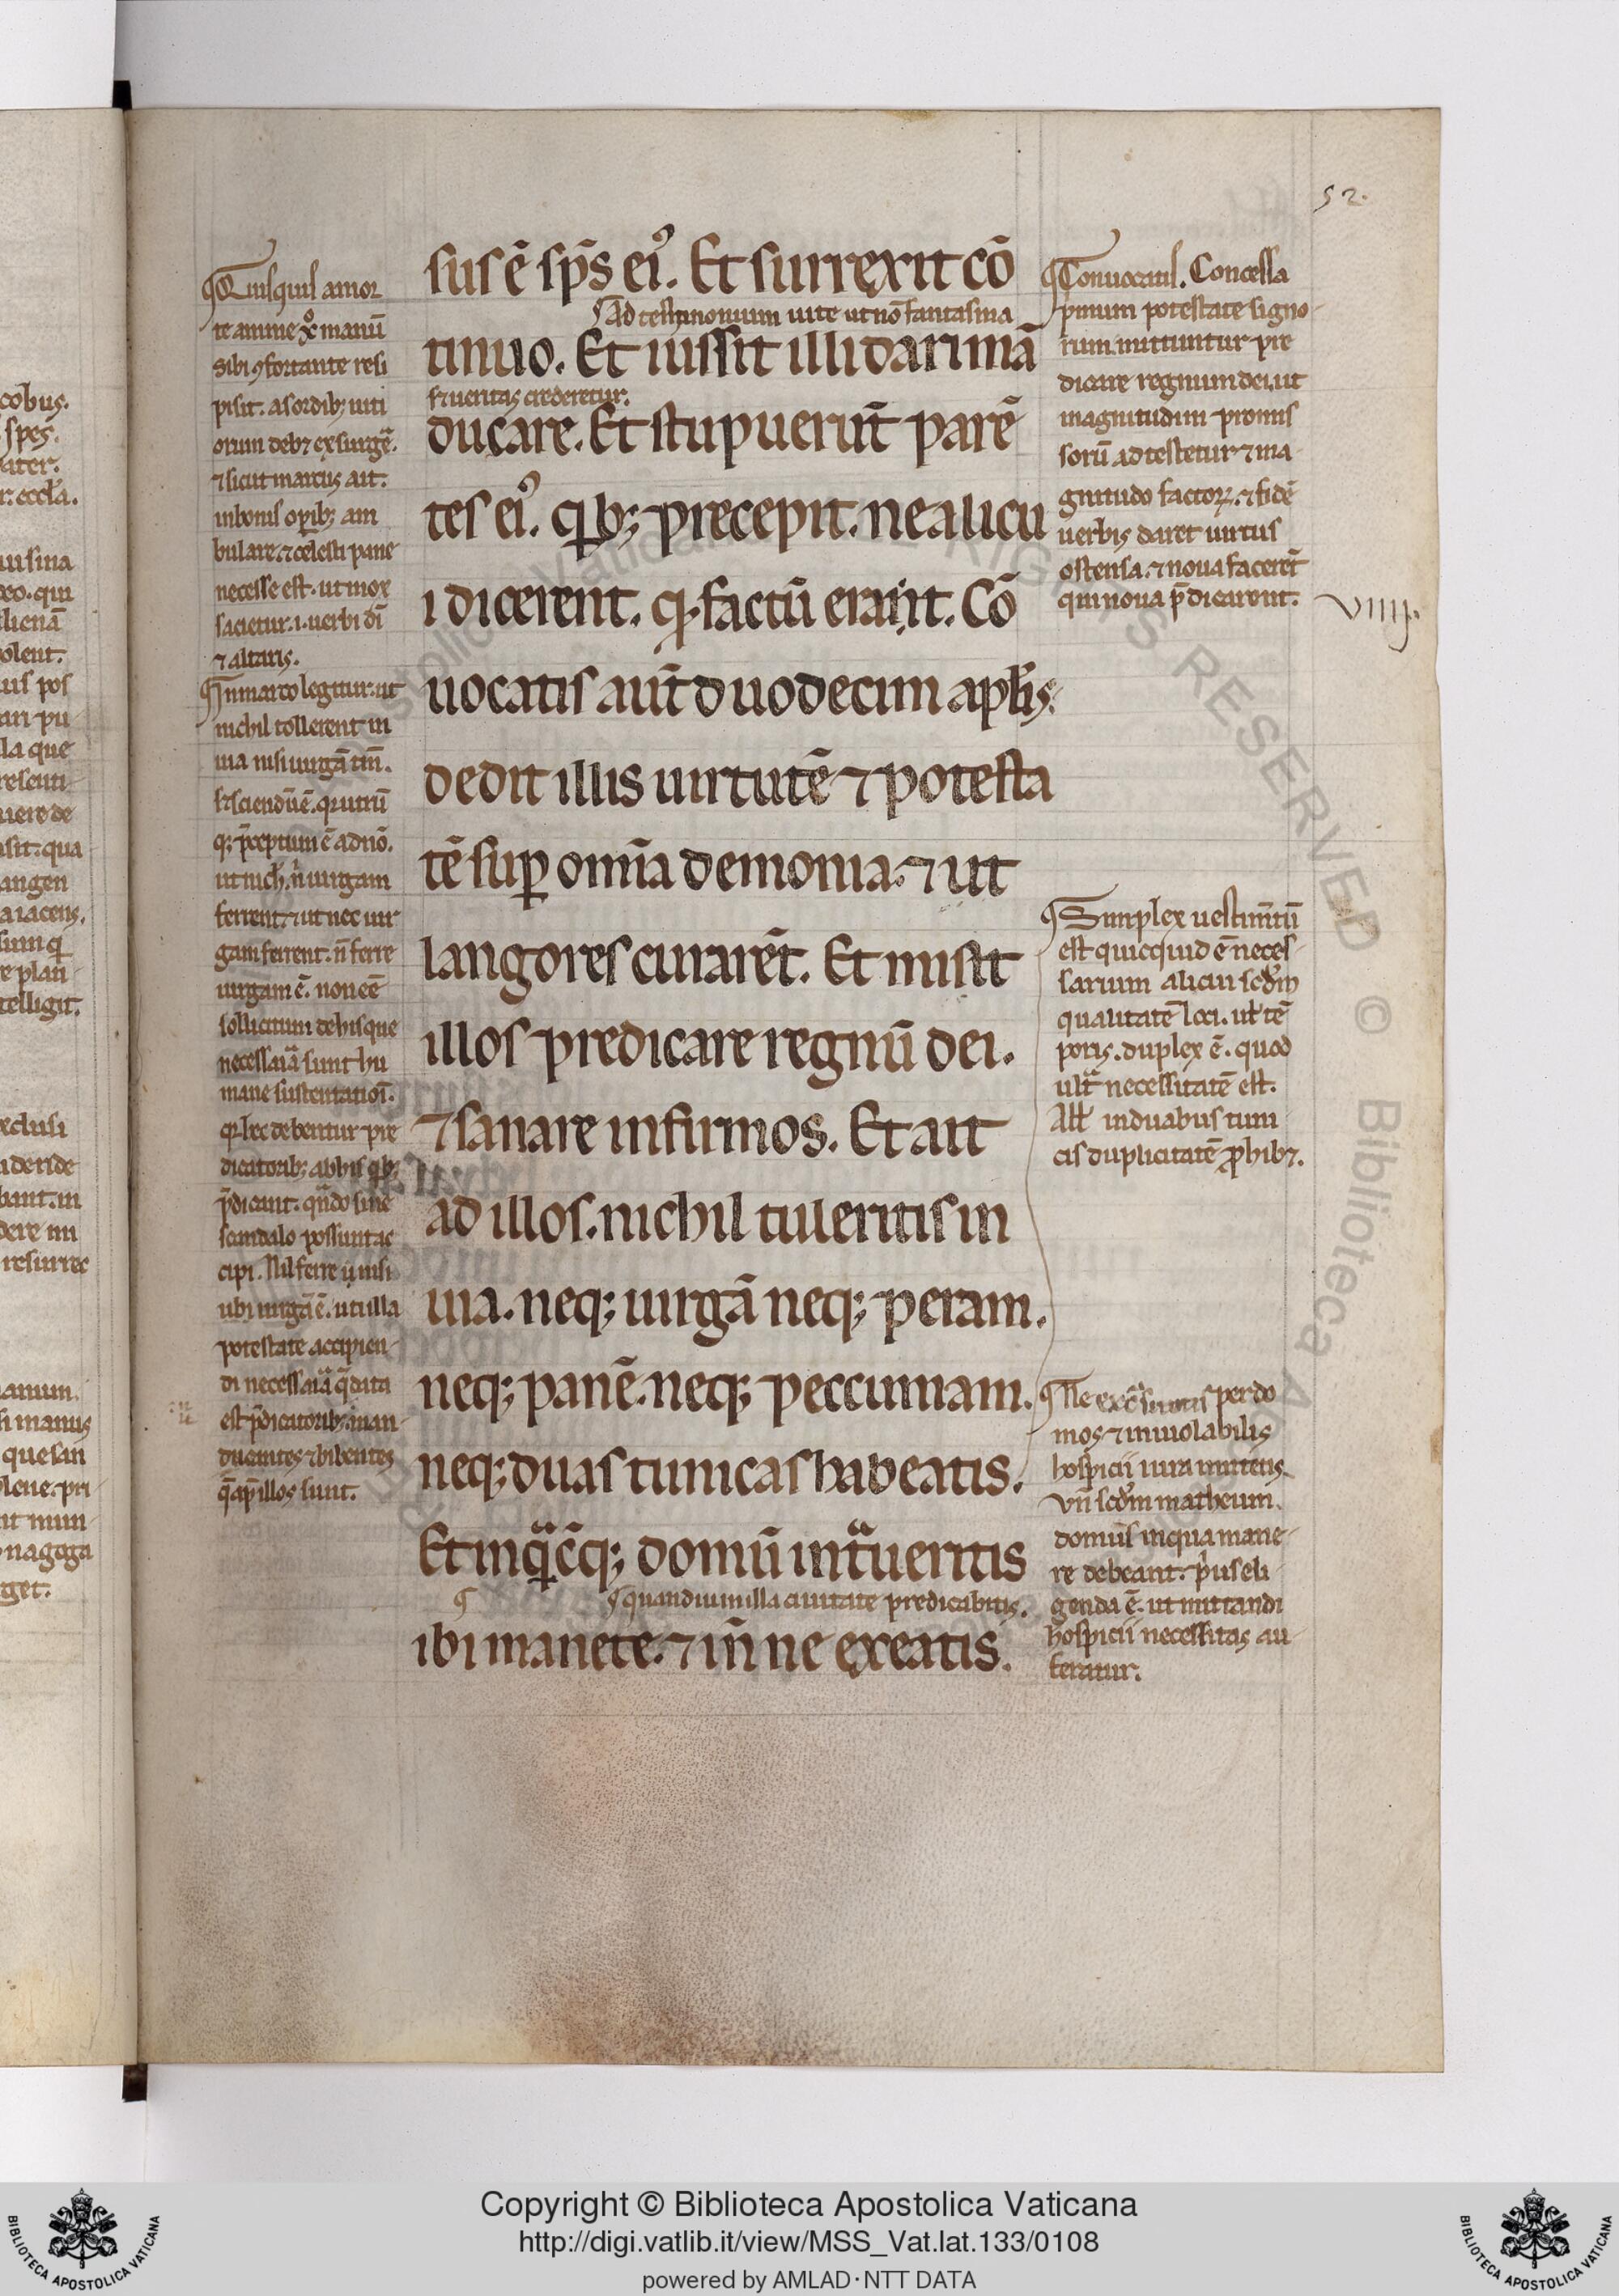 52.
sus ē sp̄s ei᾽. Et surrexit cō
¶Ad testimonium uite ut nō fantasma
tinuo. Et iussit illi dari mā
sꝫ ueritas crederetur.
ducare. Et stupuerūt parē
tes ei᾽. q̇bꝫ precepit. ne alicu
i dicerent. qḍ factū erant. Cō
uocatis aūt duodecim aplīs.
dedit illis uirtutē ⁊ potesta
tē suꝑ omīa demonia. ⁊ ut
langores curarēt. Et misit
illos predicare regnū dei.
⁊ sanare infirmos. Et ait
ad illos. nichil tuleritis in
uia. neqꝫ uirgā neqꝫ peram.
neqꝫ panē. neqꝫ peccuniam.
neqꝫ duas tunicas habeatis.
Et in qͣcūqꝫ domū intͣueritis
¶quandiu in illa ciuitate predicabitis.
ibi manete. ⁊ īn ne exeatis.
¶Quisquis amor
te anime xͦ manū
sibi ꝯfortante resi
pisit. a sordibꝫ uiti
orum debꝫ exsurgē.
⁊ sicut marcus ait.
in bonis oꝑibꝫ am
bulare. ⁊ celesti pane
necesse est. ut mox
sacietur .i. uerbi dī
⁊ altaris.
¶In marco legitur. ut
nichil tollerent in
uia nisi uirgā tm̄.
sꝫ sciendū ē. q utrū
qꝫ p̄ceptum ē a dnō.
ut nich̄. n̄ uirgam
ferrent. ⁊ ut nec uir
gam ferrent. n̄ ferre
uirgam ē. non eē
sollicitum de his que
necessaͣia sunt hu
mane sustentatioī.
q hec debentur pre
dicatoribꝫ ab his q̇bꝫ
p̄dicant. qn̄do sine
scandalo possunt ac
cipi. Nil ferre ū nisi
ubi uirgā ē. uti illa
potestate accipien
di necessaͣia q̄ data
est p̄dicatoribꝫ. man
ducantes ⁊ bibentes
q̄ ap̄ illos sunt.
¶Conuocatis. Concessa
pͥmum potestate signo
rum. mittuntur pre
dicare regnum dei. ut
magnitudini promis
sorū adtestetur ⁊ ma
gnitudo factoꝝ. ⁊ fidē
uerbis daret uirtus
ostensa. ⁊ noua facerēt
qui noua p̄dicarent.
VIIII.
¶Simplex uestimtū
est quicquid ē neces
sarium alicui scdm̄
qualitatē loci. ul̄ tē
poris. duplex ē. quod
ultͣ necessitatē est.
Alīt in duabus tuni
cis duplicitatē ꝓhibꝫ.
mos ⁊ inuiolabilis
hospicii iura mutetis.
Vn̄ scdm̄ matheum.
domus in qua mane
re debeant. pͥus eli
genda ē. ut mutandi
hospicii necessitas au
feratur.
Copyright © Biblioteca Apostolica Vaticana
http://digi.vatlib.it/view/MSS_Vat.lat.133/0108
powered by AMLAD·NTT DATA
BIBLIOTECA APOSTOLICA VATICANA
BIBLIOTECA APOSTOLICA VATICANA